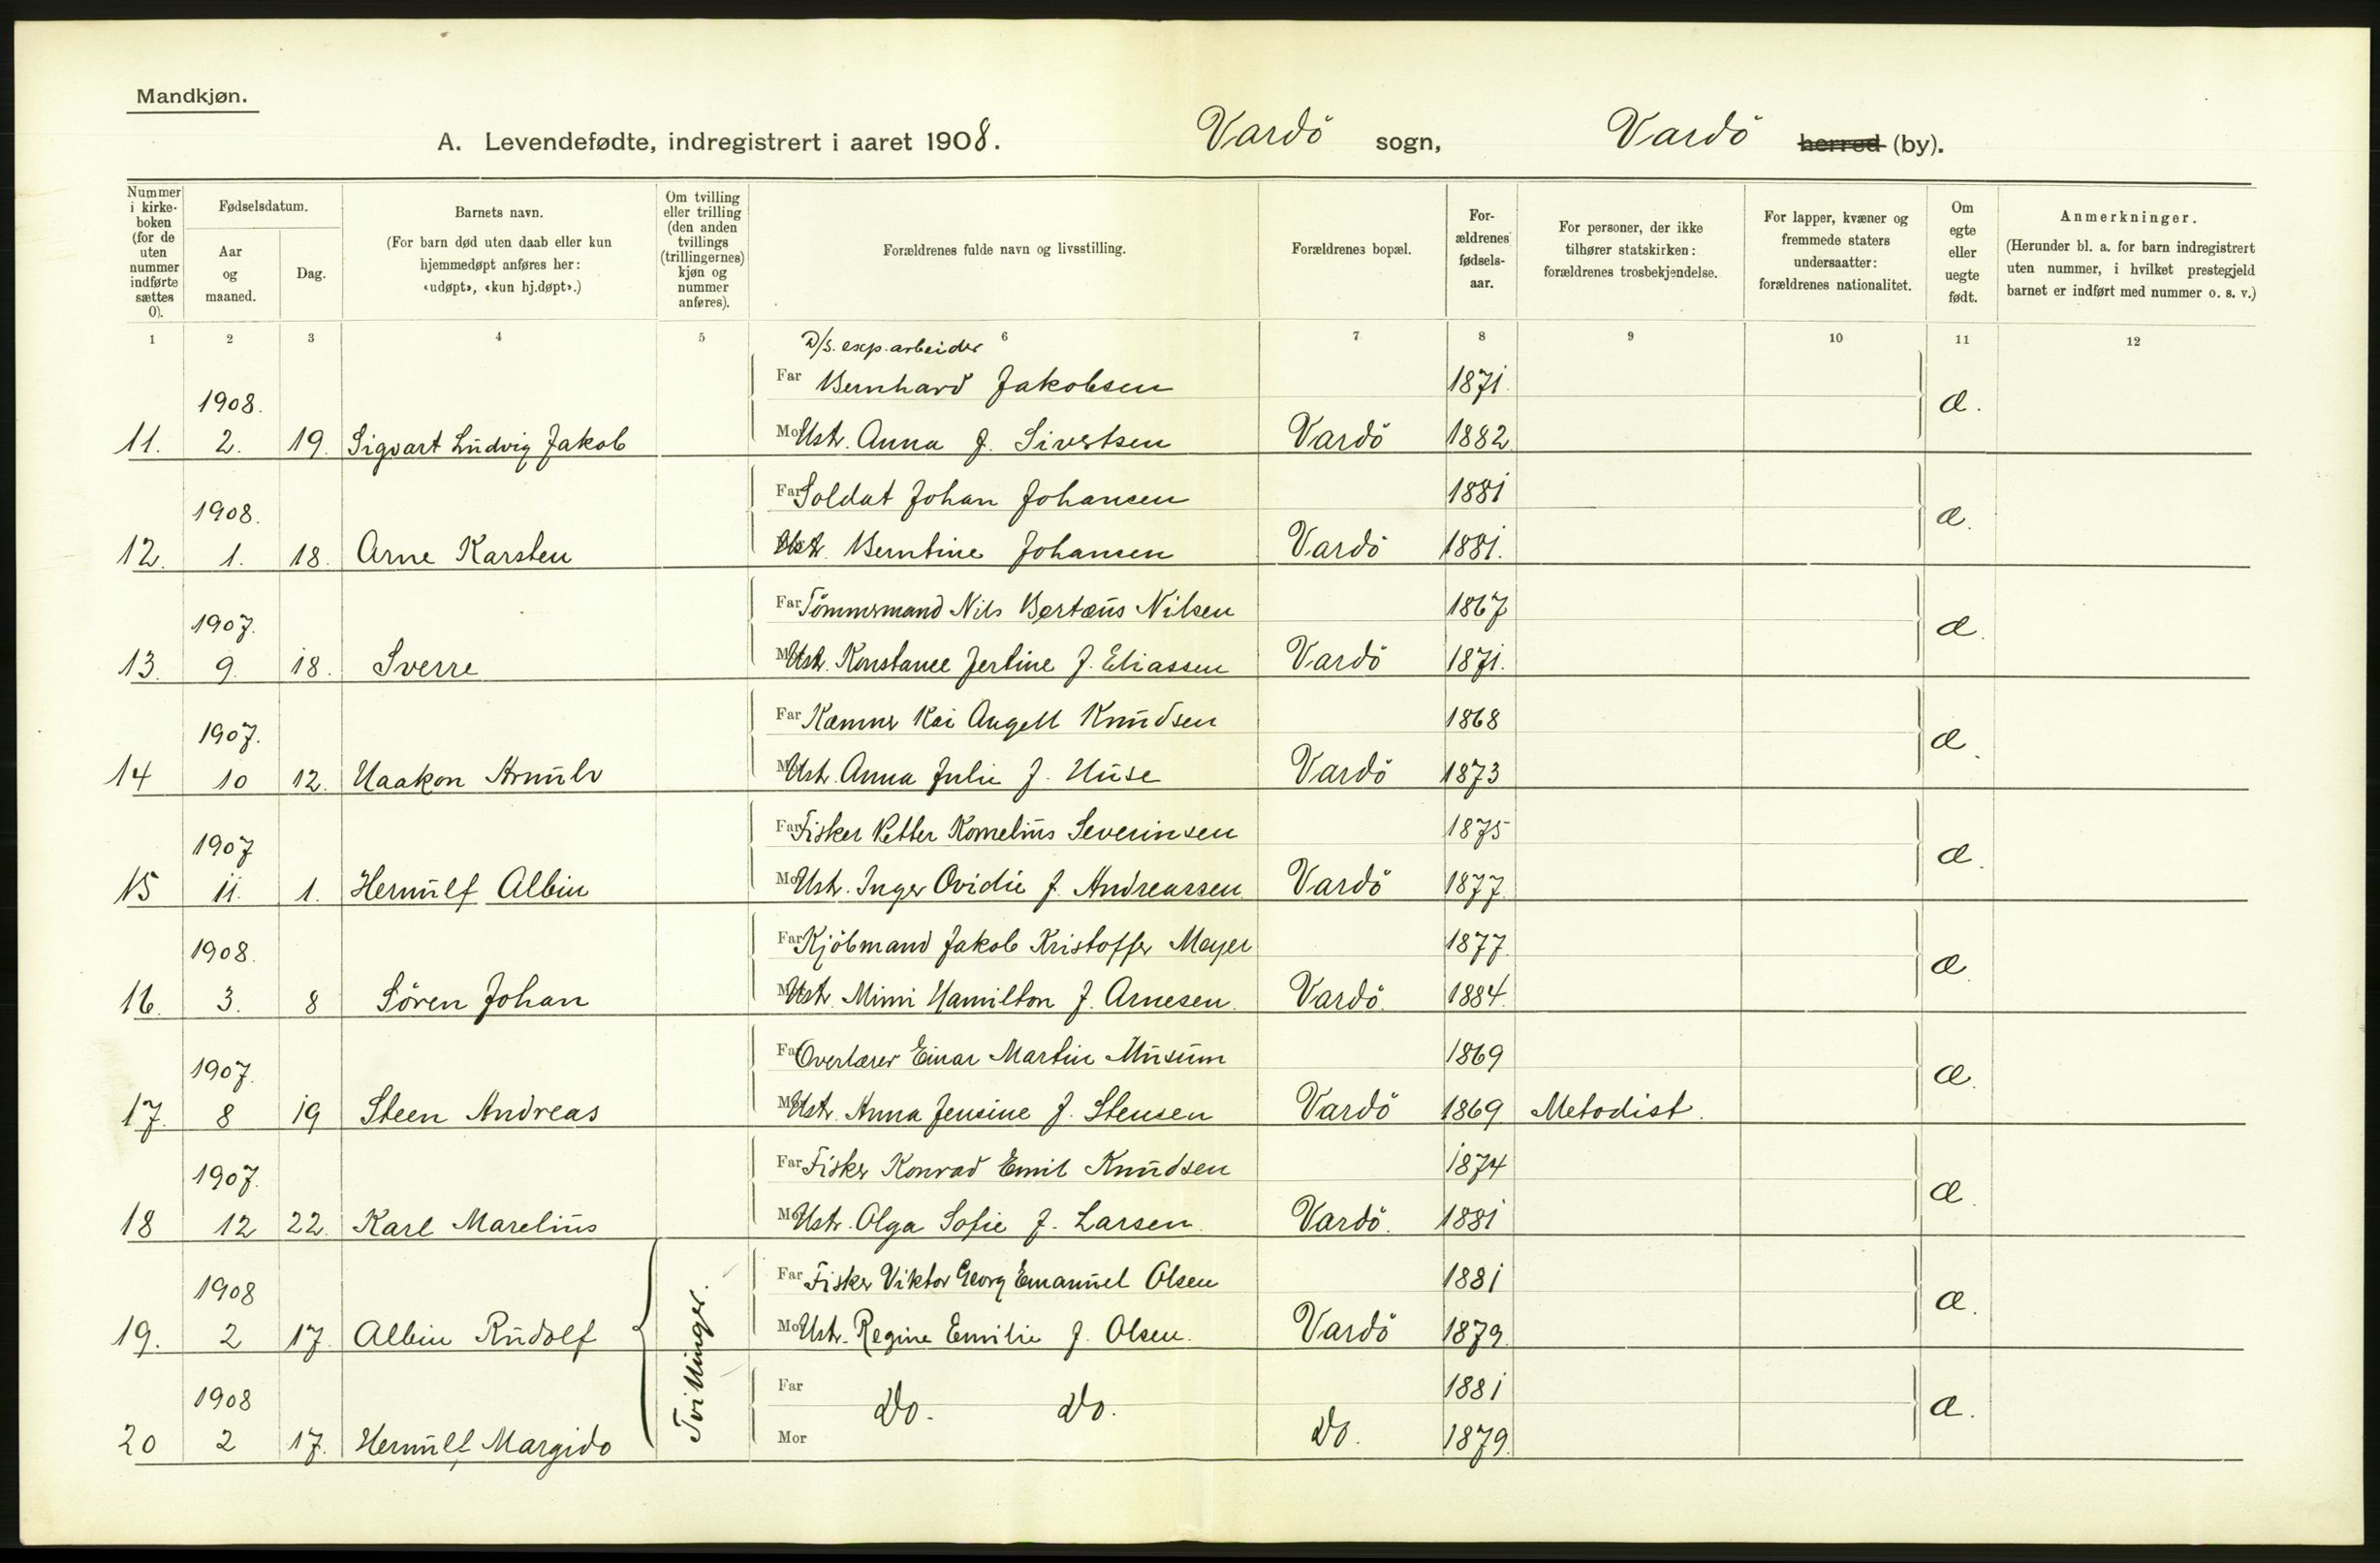 Mandkjøn.
A. Levendefødte, indregistrert i aaret 1908. Vardö sogn, Vardö herred (by).
Nummer i kirke-boken (for de uten nummer indførte sættes 0).
Fødselsdatum.
Aar og maaned.
Dag.
Barnets navn.
(For barn død uten daab eller kun hjemmedøpt anføres her: «udøpt», «kun hj.døpt».)
Om tvilling eller trilling (den anden tvillings (trillingernes) kjøn og nummer anføres).
Forældrenes fulde navn og livsstilling.
Forældrenes bopæl.
For-ældrenes fødsels-aar.
For personer, der ikke tilhører statskirken: forældrenes trosbekjendelse.
For lapper, kvæner og fremmede staters undersaatter: forældrenes nationalitet.
Om egte eller uegte født.
Anmerkninger.
(Herunder bl. a. for barn indregistrert uten nummer, i hvilket prestegjeld barnet er indført med nummer o. s. v.)
1 2 3 4 5 6 7 8 9 10 11 12
D/S. exp. arbeider
1908. Far Bernhard Jakobsen 1871. æ.
11. 2. 19. Sigvart Ludvig Jakob Mor Hstr. Anna f. Sivertsen Vardö 1882
1908. Far Soldat Johan Johansen 1881 æ.
12. 1. 18. Arne Karsten Mor Hstr. Berntine Johansen Vardö 1881.
1907. Far Tömmermand Nils Bertæus Nilsen 1867 æ.
13. 9. 18. Sverre Mor Hstr. Konstance Jertine f. Eliassen Vardö 1871.
1907. Far Kæmner Kai Angell Knudsen 1868 æ.
14 10 12. Haakon Arnulv Mor Hstr. Anna Julie f. Huse Vardö 1873
1907 Far Fisker Petter Kornelius Severinsen 1875 æ.
15 11. 1. Hermulf Albin Mor Hstr. Inger Ovidie f. Andreassen Vardö 1877.
1908. Far Kjöbmand Jakob Kristoffer Meyer 1877. æ.
16. 3. 8 Sören Johan Mor Hstr. Mimi Hamilton f. Arnesen. Vardö. 1884.
1907. Far Overlærer Einar Martin Musum 1869 æ.
17. 8 19 Steen Andreas Mor Hstr. Anna Jensine f. Stensen Vardö 1869 Metodist.
1907. Far Fisker Konrad Emil Knudsen 1874 æ.
18 12 22. Karl Marelius Mor Hstr. Olga Sofie f. Larsen. Vardö. 1881
1908 Far Fisker Viktor Georg Emanuel Olsen 1881 æ.
19. 2 17. Albin Rudolf Tvillinger. Mor Hstr. Regine Emilie f. Olsen. Vardö 1879.
1908 Far Do. Do. 1881 æ.
20 2 17. Hermulf Margido Mor Do. 1879.